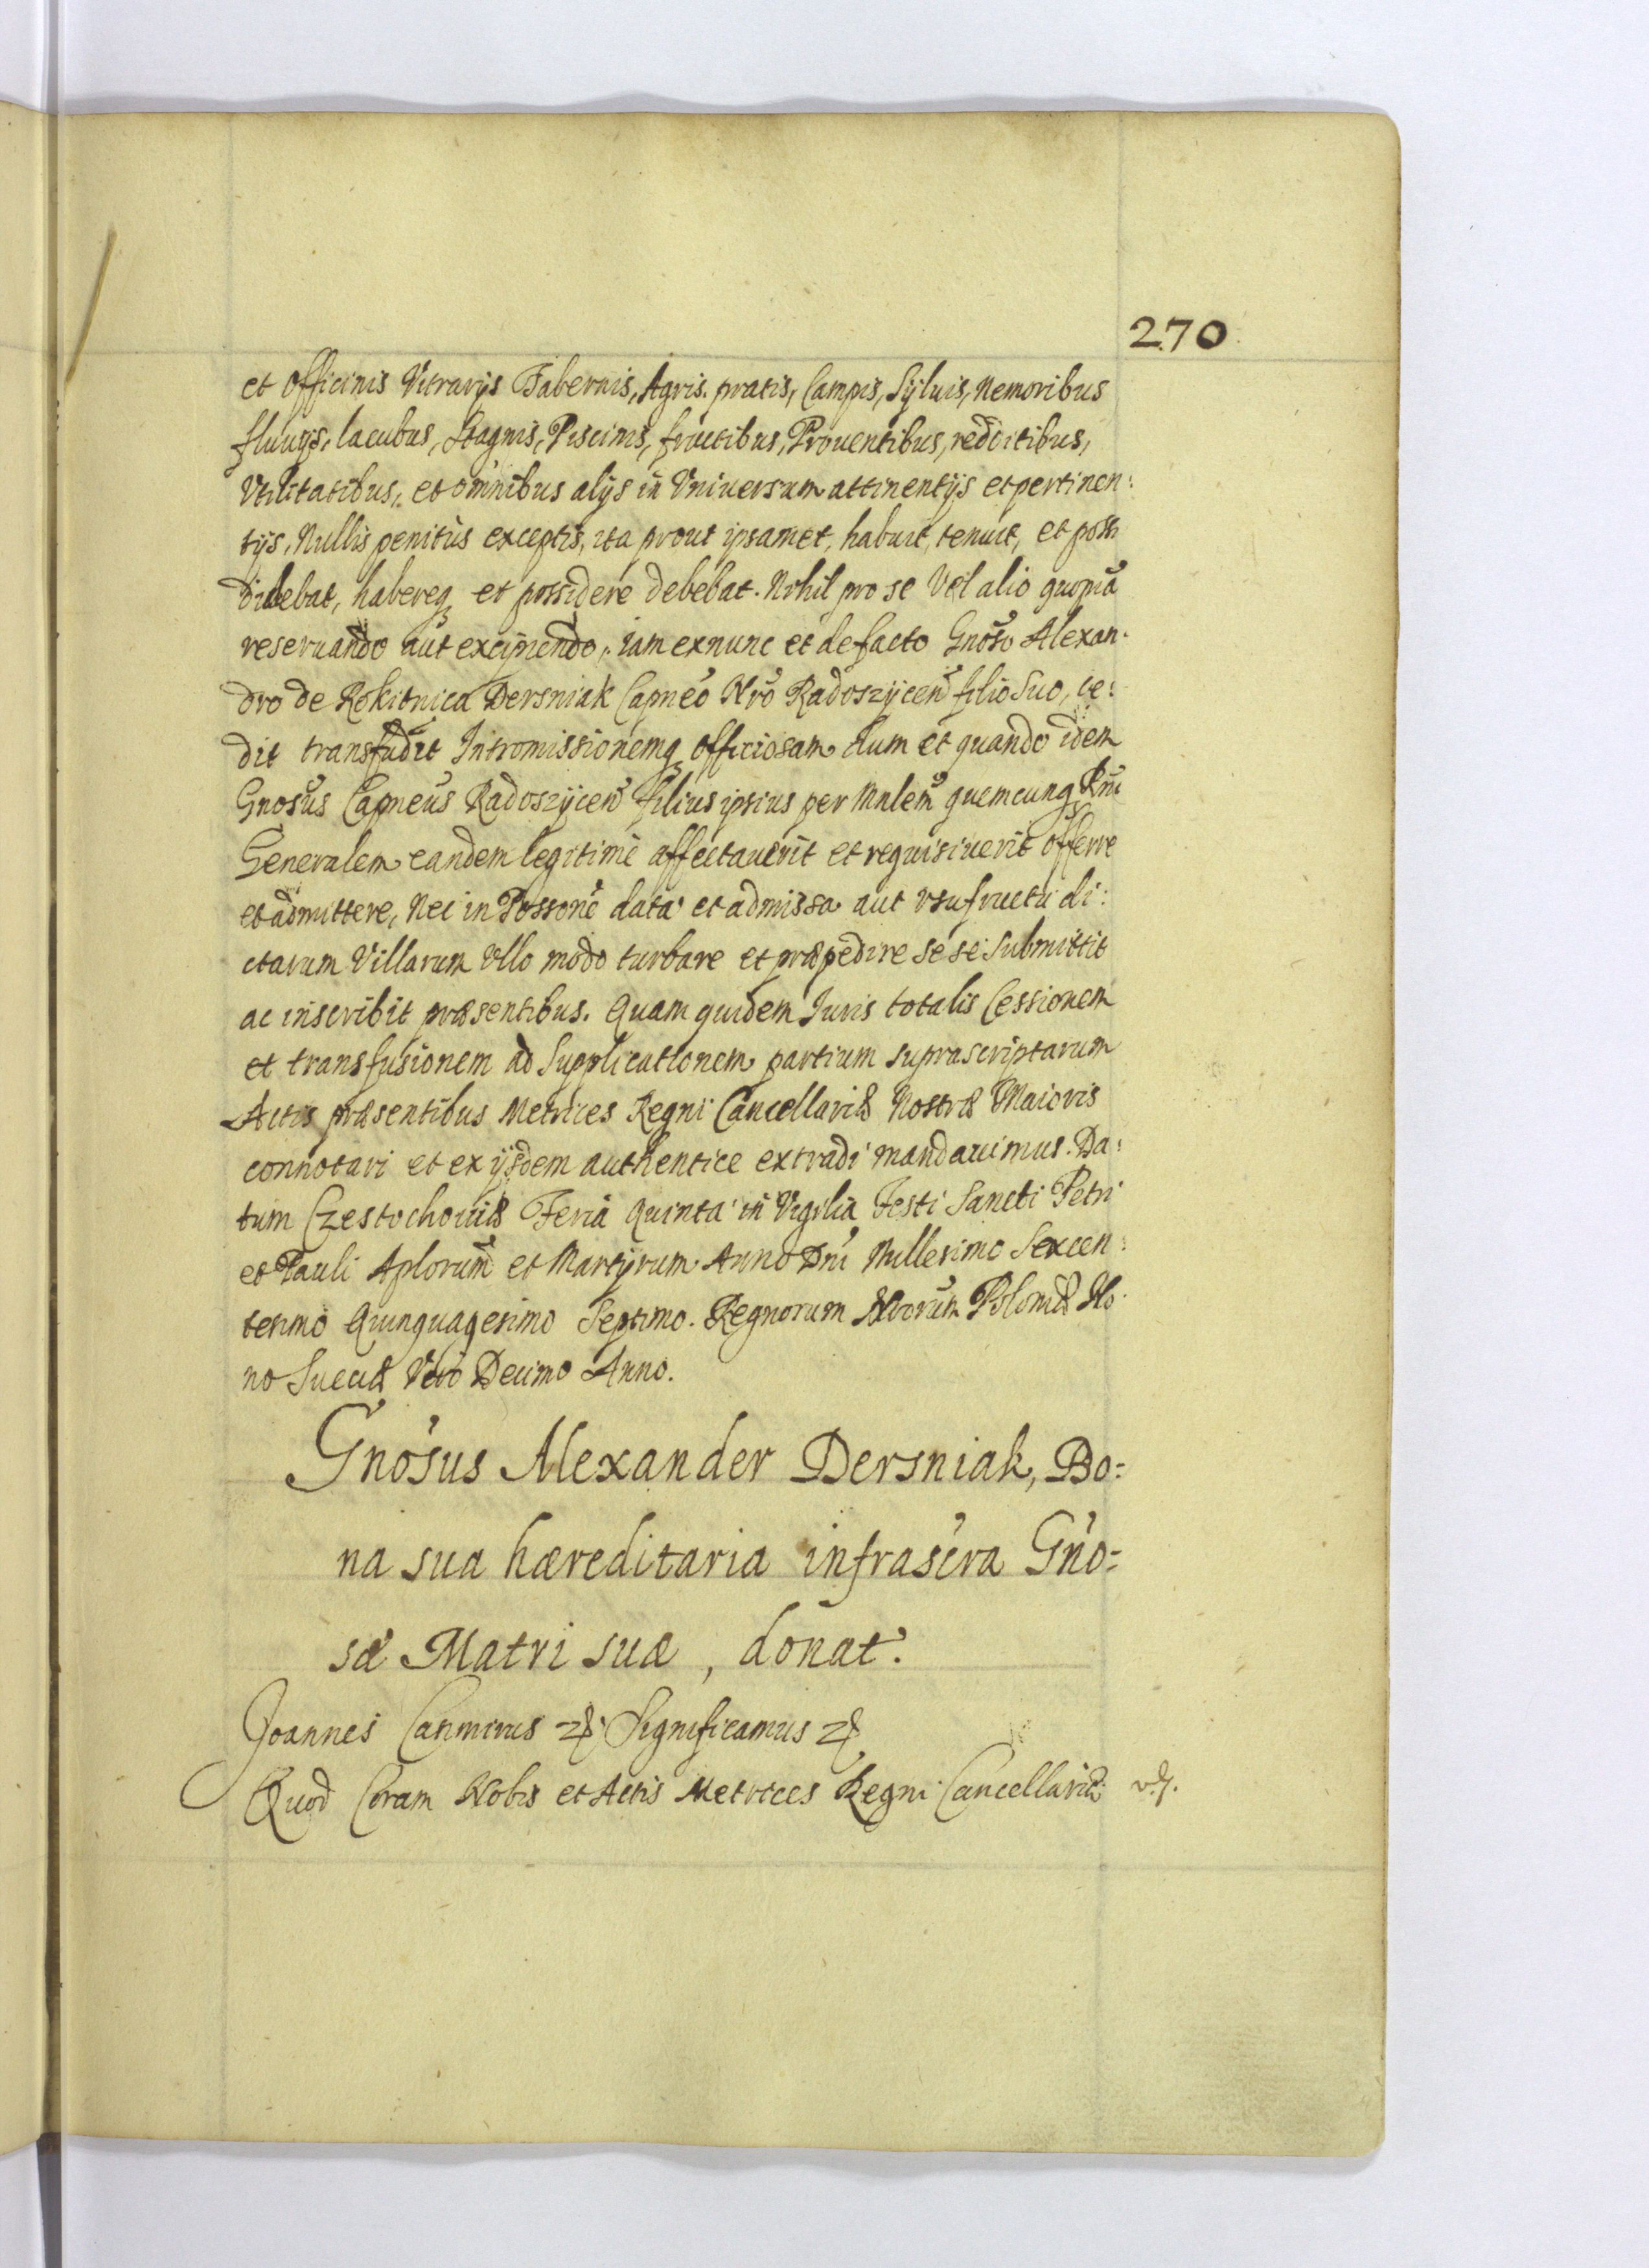 270
et Officinis Vitrarijs Tabernis, Agris. pratis, Campis, Syluis, Nemoribus
fluuijs, lacubus, Stagnis, Piscinis, fructibus, Prouentibus, redditibus,
Vtilitatibus, et omnibus alijs in Vniuersum attinentijs et pertinen:
tijs, Nullis penitùs exceptis, ita prout ipsamet, habuit, tenuit, et possi
debat, habereq et possidere debebat. Nihil pro se Vel alio quopiã
reseruando aut excipiendo, iam exnunc et de facto Gnoso Alexan-
dro de Rokitnica Dersniak Capneo Nro Radoszijcen filio Suo, ce:
dit transfudit Intromissionemq officiosam dum et quando idem
Gnosus Capneus Radoszijcen filius ipsius per Mnlem quemcunq Rni
Generalem eandem legitimè affectauerit et requisiuerit offerre
et admittere, Nec in Possone data et admissa aut vsufructu di:
ctarum Villarum Vllo modo turbare et præpedire sese submittit
ac inscribit præsentibus. Quam quidem Iuris totalis Cessionem
et transfusionem ad Supplicationem partium suprascriptarum
Actis præsentibus Metrices Regni Cancellariæ Nostræ Maioris
connotari et ex ijsdem authentice extradi mandauimus. Da:
tum Czestochouiæ Feria Quinta in Vigilia Festi Sancti Petri
et Pauli Aplorum et Martyrum Anno Dni Millesimo Sexcen:
tesimo Quinquagesimo Septimo. Regnorum Nrorum Poloniæ No-
no Sueciæ Vero Decimo Anno.
Gnosus Alexander Dersniak, Bo=
na sua hæreditaria infrascra Gno=
sæ Matri suæ, donat.
Joannes Casimirus etc Significamus etc
Quod Coram Nobis et Actis Metrices Regni Cancellariæ